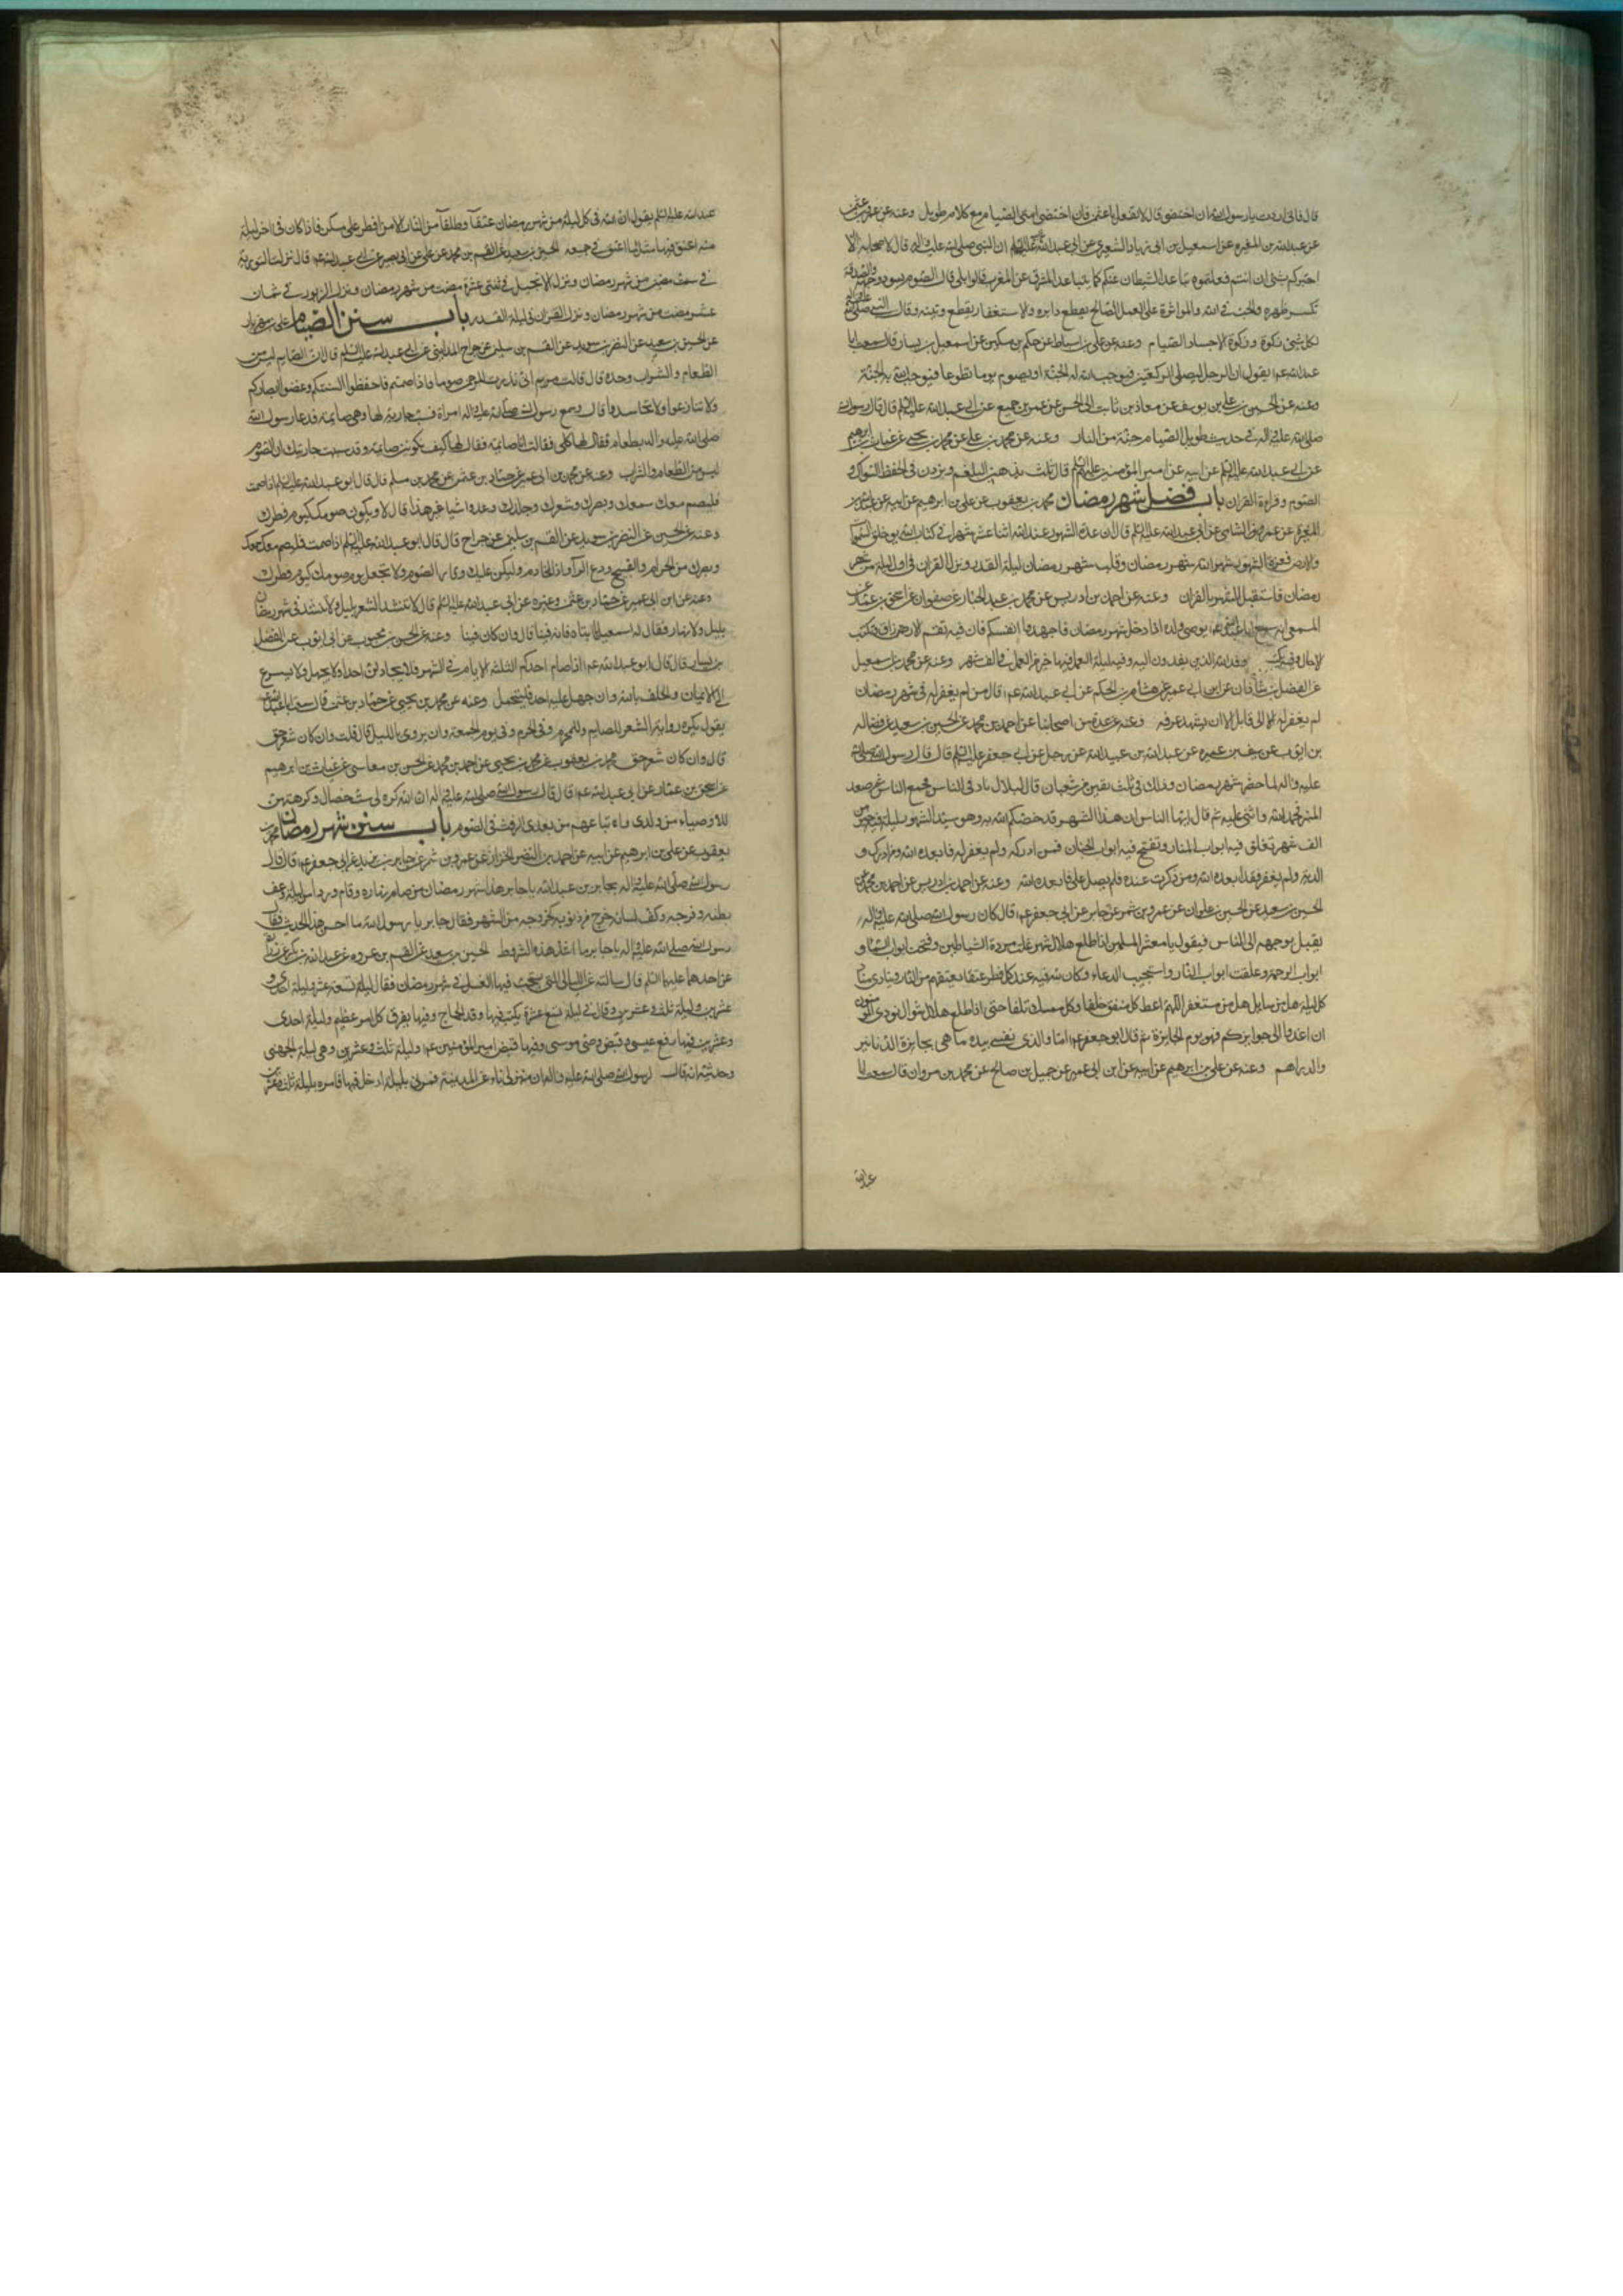 قال فاني اردت يا رسول الله ان اختصي قال لا تفعل يا عثمن فان اختصى امتى الصيام مع كلام طويل وعنه عن
عن عبد الله بن المغيره عن اسمعيل بن ابى زياد الشعيرى عن ابى عبد الله ان النبى صلى الله عليه واله قال لاصحابه الا
اخبركم بشى ان انتم فعلتموه تباعد الشيطان عنكم كما تباعد المشرق عن المغرب قالوا بلى قال الصوم يسود وجهه والصدقة
تكسر ظهره والحب فى الله والموازرة على العمل الصالح يقطع دابره والاستغفار يقطع وتينه وقال النبى صلى الله عليه واله
لكل شئ زكوة وزكوة الاجساد الصيام وعنه عن على بن اسباط عن حكم بن مسكين عن اسمعيل بن يسار قال سمعت ابا
عبد الله عم يقول ان الرجل ليصلى الركعتين فيوجب الله له الجنة او يصوم يوما تطوعا فيوجب الله به الجنة
وعنه عن الحسن بن على بن يوسف عن معاذ بن ثابت ابى الحسن عن عمر بن جميع عن ابى عبد الله عليه السلم قال قال رسول الله
صلى الله عليه واله فى حديث طويل الصيام جنة من النار وعنه عن محمد بن على عن محمد بن يحيى عن غياث بن ابرهيم
عن ابى عبد الله عليه السلم عن ابيه عن امير المؤمنين عليه السلم قال ثلث يذهبن البلغم ويزدن فى الحفظ السواك و
الصوم وقراءة القران باب فضل شهر رمضان محمد بن يعقوب عن على بن ابرهيم عن ابيه عن عبد الله بن
المغيرة عن عمرو الشامى عن ابى عبد الله عليه السلم قال ان عدة الشهور عند الله اثنا عشر شهرا فى كتاب الله يوم خلق السموات
والارض فغرة الشهور شهر الله شهر رمضان وقلب شهر رمضان ليلة القدر ونزل القران فى اول ليلة من شهر
رمضان فاستقبل الشهر بالقران وعنه عن احمد بن ادريس عن محمد بن عبد الجبار عن صفوان عن اسحق بن عمار عن
المسمعى انه سمع ابا عبد الله عم يوصى ولده اذا دخل شهر رمضان فاجهدوا انفسكم فان فيه تقسم الارزاق وتكتب
الاجال وفيه يكتب وفد الله الذين يفدون اليه وفيه ليلة العمل فيها خير من العمل فى الف شهر وعنه عن محمد بن اسمعيل
عن الفضل بن شاذان عن ابن ابى عمير عن هشام بن الحكم عن ابى عبد الله عم قال من لم يغفر له فى شهر رمضان
لم يغفر له الى قابل الا ان يشهد عرفه وعنه عن عدة من اصحابنا عن احمد بن محمد عن الحسين بن سعيد عن فضاله
بن ايوب عن سيف بن عميره عن عبد الله بن عبيد الله عن رجل عن ابى جعفر عليه السلم قال قال رسول الله صلى الله
عليه واله لما حضر شهر رمضان وذلك فى ثلث بقين من شعبان قال لبلال ناد فى الناس فجمع الناس ثم صعد
المنبر فحمد الله واثنى عليه ثم قال ايها الناس ان هذا الشهر قد خصكم الله به وهو سيد الشهور ليلة فيه خير من
الف شهر تغلق فيه ابواب النار وتفتح فيه ابواب الجنان فمن ادركه ولم يغفر له فابعده الله ومن ادرك و
الديه ولم يغفر له فابعده الله ومن ذكرت عنده فلم يصل على فابعده الله وعنه عن احمد بن ادريس عن احمد بن محمد عن
الحسين بن سعيد عن الحسين بن علوان عن عمرو بن شمر عن جابر عن ابى جعفر عم قال كان رسول الله صلى الله عليه واله
يقبل بوجهه الى الناس فيقول يا معشر المسلمين اذا طلع هلال شهر غلت مردة الشياطين وفتحت ابواب السماء و
ابواب الرحمة وغلقت ابواب النار واستجيب الدعاء وكان لله فيه عند كل فطر عتقاء يعتقهم من النار وينادى مناد
كل ليلة هل من سايل هل من مستغفر اللهم اعط كل منفق خلفا وكل ممسك تلفا حتى اذا طلع هلال شوال نودى المؤمنون
ان اغدوا الى جوايزكم فهو يوم الجايزة ثم قال ابو جعفر عم اما والذى نفسى بيده ما هى بجايزة الدنانير
والدراهم وعنه عن على بن ابرهيم عن ابيه عن ابن ابى عمير عن جميل بن صالح عن محمد بن مروان قال سمعت ابا
عبد الله
عبد الله عليه السلم يقول ان لله فى كل ليلة من شهر رمضان عتقاء وطلقاء من النار الا من افطر على مسكر فاذا كان فى اخر ليلة
منه اعتق فيها مثل ما اعتق فى جميعه الحسين بن سعيد عن القسم بن محمد عن على عن ابى بصير عن ابى عبد الله عم قال نزلت التورية
فى ست مضين من شهر رمضان ونزل الانجيل فى ثنتى عشرة مضت من شهر رمضان ونزل الزبور فى ثمان
عشر مضت من شهر رمضان ونزل القران فى ليلة القدر باب سنن الصيام على بن مهزيار
عن الحسن بن سعيد عن النضر بن سويد عن القسم بن سليم عن جراح المداينى عن ابى عبد الله عليه السلم قال ان الصيام ليس من
الطعام والشراب وحده قال قالت مريم انى نذرت للرحمن صوما فاذا صمتم فاحفظوا السنتكم وغضوا ابصاركم
ولا تنازعوا ولا تحاسدوا قال وسمع رسول الله صلى الله عليه واله امراة تسب جارية لها وهى صايمة فدعا رسول الله
صلى الله عليه واله بطعام فقال لها كلى فقالت انا صايمة فقال لها كيف تكونين صايمة وقد سببت جاريتك ان الصوم
ليس من الطعام والشراب وعنه عن محمد بن ابى عمير عن حماد بن عثمن عن محمد بن مسلم قال قال ابو عبد الله عليه السلم اذا صمت
فليصم معك سمعك وبصرك وشعرك وجلدك وعدد اشيا غير هذا قال لا ويكون صومك كيوم فطرك
وعنه عن الحسين عن النضر بن سويد عن القسم بن سليم عن جراح قال قال ابو عبد الله عليه السلم اذا صمت فليصم معك سمعك
وبصرك من الحرام والقبيح ودع المرآ واذى الخادم وليكن عليك وقار الصوم ولا تجعل يوم صومك كيوم فطرك
وعنه عن ابن ابى عمير عن حماد بن عثمن وغيره عن ابى عبد الله عليه السلم قال لا تنشد الشعر بليل ولا تنشد فى شهر رمضان
بليل ولا نهار فقال له اسمعيل يا ابتاه فانه فينا قال وان كان فينا وعنه عن الحسن بن محبوب عن ابى ايوب عن الفضل
بن يسار قال قال ابو عبد الله عم اذا صام احدكم الثلثة الايام فى الشهر فلا يجادلن احدا ولا يجهل ولا يسرع
الى الايمان والحلف بالله وان جهل عليه احد فليتحمل وعنه عن محمد بن يحيى عن حماد بن عثمن قال سمعت ابا عبد الله عم
يقول يكره رواية الشعر للصايم والمحرم وفى الحرم وفى يوم الجمعة وان يروى بالليل قال قلت وان كان شعر حق
قال وان كان شعر حق محمد بن يعقوب عن محمد بن يحيى عن احمد بن محمد عن الحسن بن معاسى عن غياث بن ابرهيم
عن اسحق بن عمار عن ابى عبد الله عم قال قال رسول الله صلى الله عليه واله ان الله كره لى ست خصال وكرهتهن
للاوصياء من ولدى واتباعهم من بعدى الرفث فى الصوم باب سنن شهر رمضان محمد بن
يعقوب عن على بن ابرهيم عن ابيه عن احمد بن النضر الخزاز عن عمرو بن شمر عن جابر بن يزيد عن ابى جعفر عم قال قال
رسول الله صلى الله عليه واله لجابر بن عبد الله يا جابر هذا شهر رمضان من صام نهاره وقام وردا من ليله وعف
بطنه وفرجه وكف لسانه خرج من ذنوبه كخروجه من الشهر فقال جابر يا رسول الله ما احسن هذا الحديث فقال
رسول الله صلى الله عليه واله يا جابر ما اشد هذه الشروط الحسين بن سعيد عن القسم بن عروه عن عبد الله بن بكير عن زرارة
عن احدهما عليهما السلم قال سالته عن الليالى التى يستحب فيها الغسل فى شهر رمضان فقال ليلة تسعة عشر وليلة احدى و
عشرين وليلة ثلث وعشرين وقال فى ليلة تسع عشرة يكتب فيها وفد الحاج وفيها يفرق كل امر عظيم وليلة احدى
وعشرين فيها رفع عيسى وقبض وصى موسى وفيها قبض امير المؤمنين عم وليلة ثلث وعشرين وهى ليلة الجهنى
وحديثه انه قال لرسول الله صلى الله عليه واله ان منزلى ناء عن المدينة فمرنى بليلة ادخل فيها فامره بليلة ثلث وعشرين